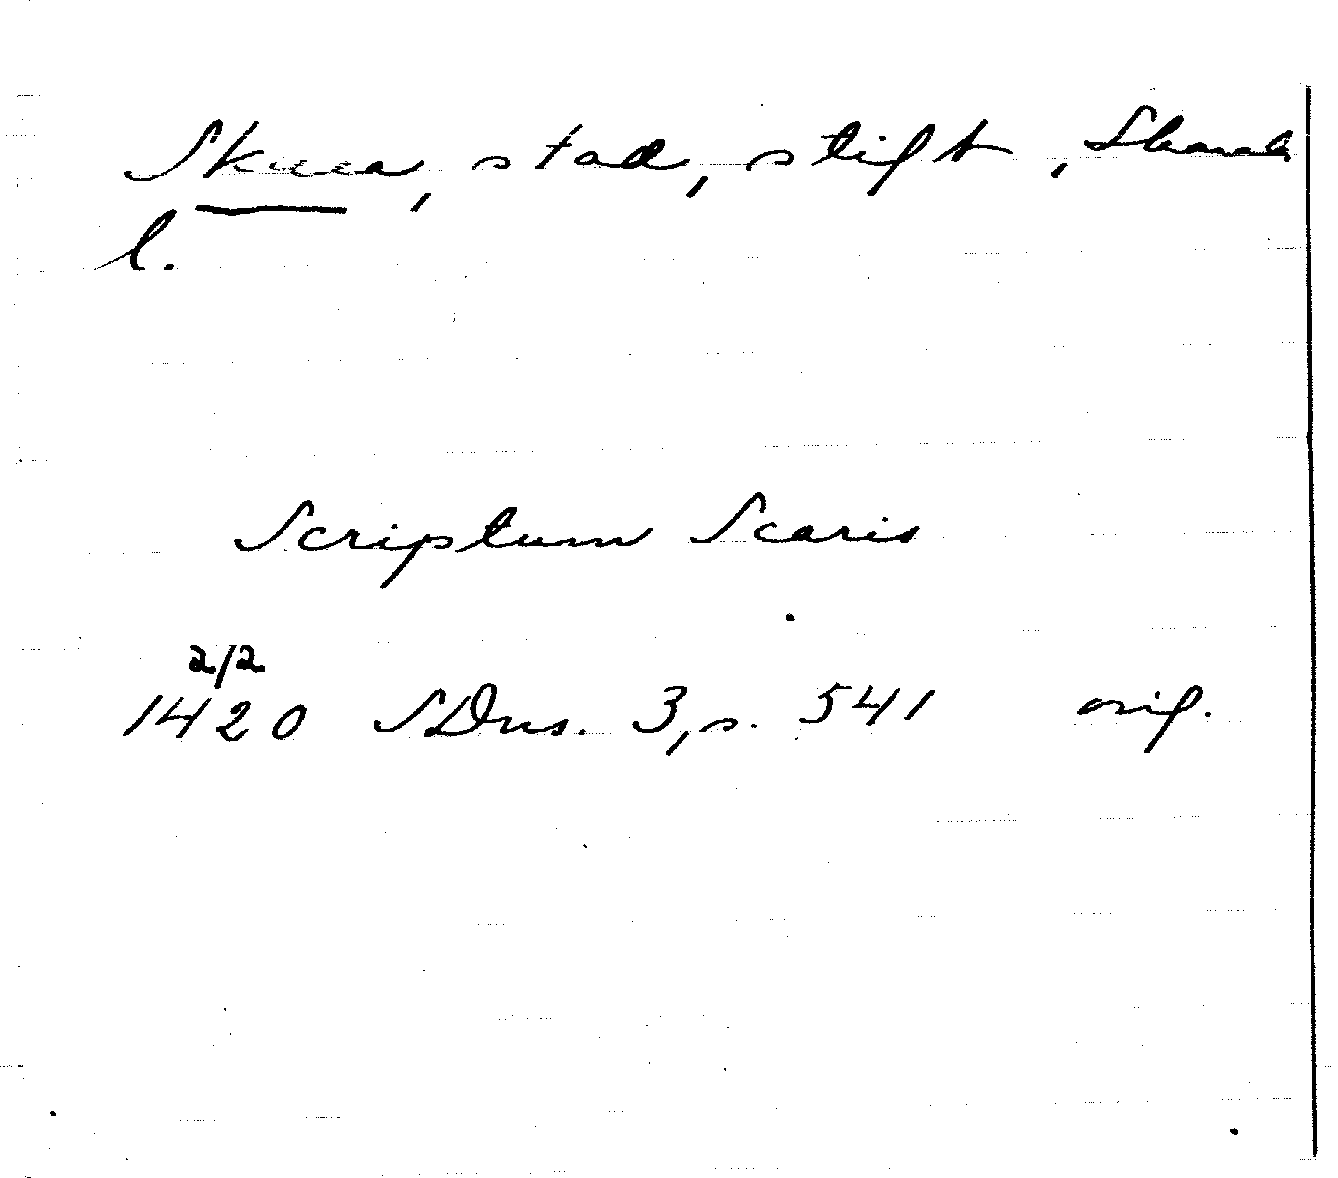 Skara, stad, stift, Skarab.
l.
Scriptum Scaris
2/2
1420 SDns. 3, s. 541 orig.